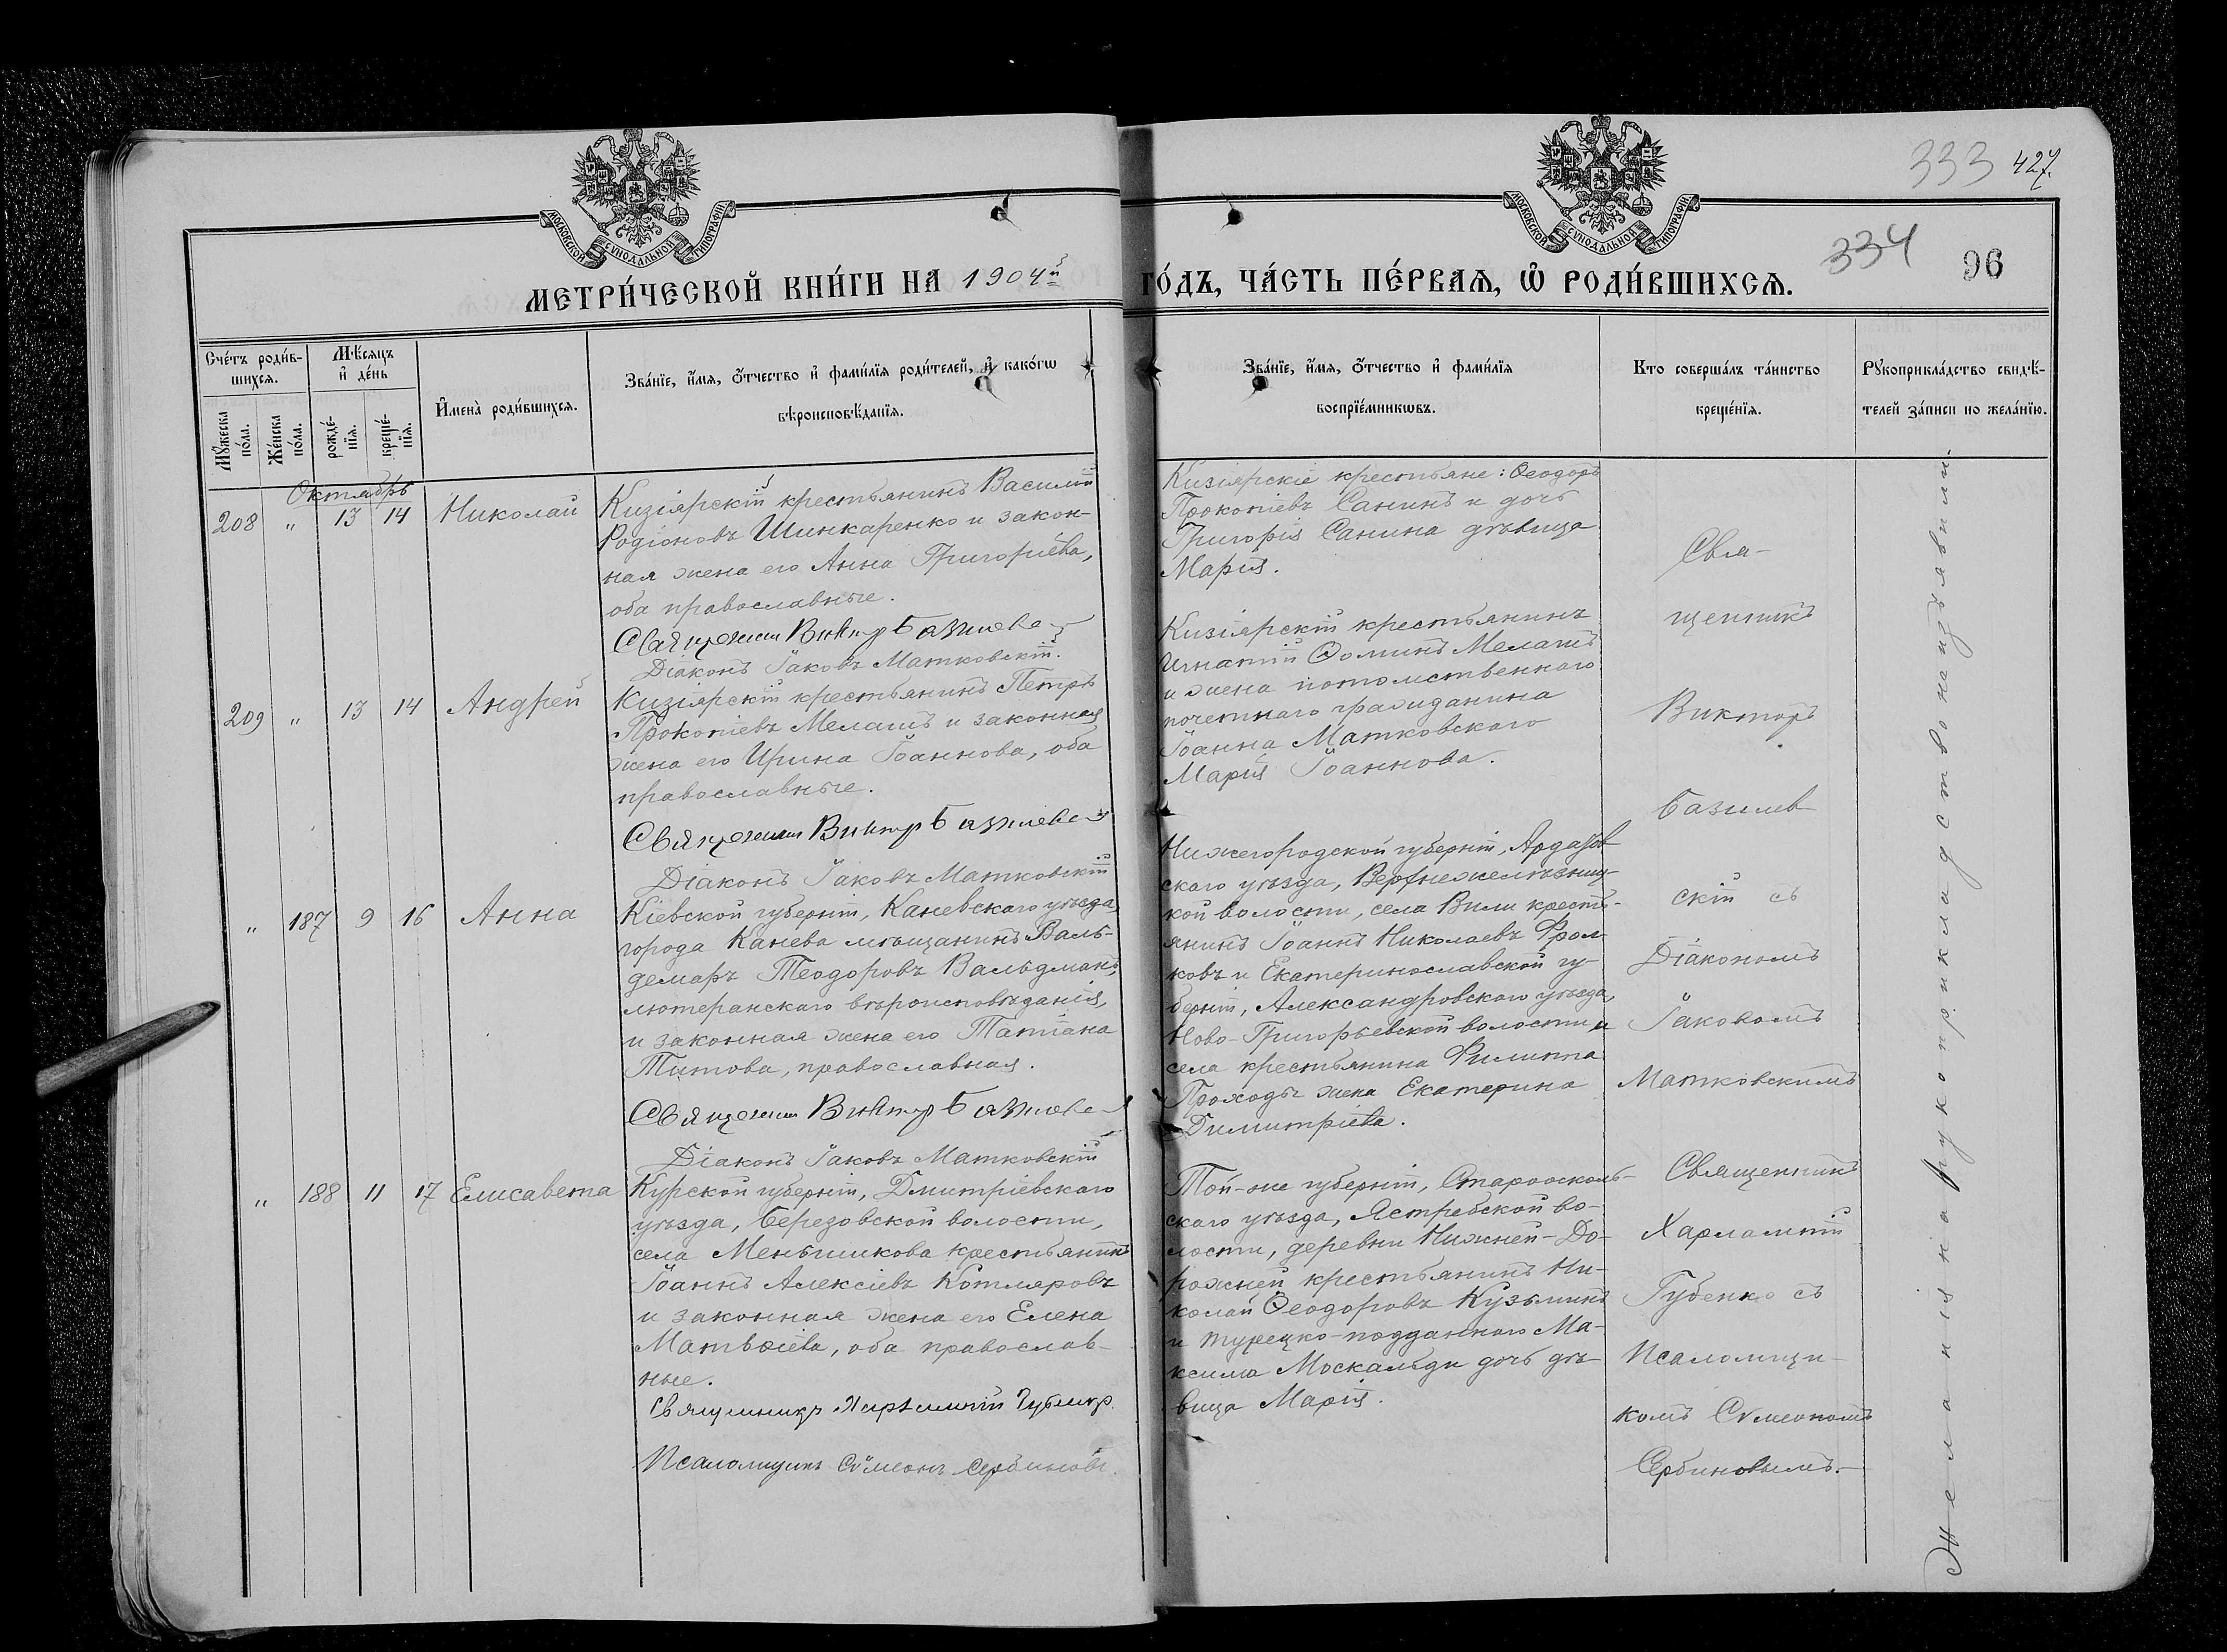 333 427.
334 96
МОСКОВСКОЙ СѴНОДАЛЬНОЙ ТИПОГРАФІИ
МОСКОВСКОЙ СѴНОДАЛЬНОЙ ТИПОГРАФІИ
МЕТРИ́ЧЕСКОЙ КНИ́ГИ НА 1904й ГО́ДЪ, ЧА́СТЬ ПЕ́РВАѦ, Ѡ҆ РОДИ́ВШИХСѦ.
Сче́тъ роди́в-
шихсѧ.
Мꙋ́жеска по́ла.
Же́нска по́ла.
Мѣ́сѧцъ
и҆ де́нь
рожде́-
нїѧ.
креще́-
нїѧ.
И҆мена̀ роди́вшихсѧ.
Зва́нїе, и҆́мѧ, ѻ҆́тчество и҆ фами́лїѧ роди́телей, и҆ како́гѡ
вѣроисповѣ́данїѧ.
Зва́нїе, и҆́мѧ, ѻ҆́тчество и҆ фами́лїѧ
воспрїе́мникѡвъ.
Кто соверша́лъ та́инство
креще́нїѧ.
Рꙋкоприкла́дство свидѣ́-
телей за́писи по жела́нїю.
Октябрь
208 " 13 14 Николай
Кизіярскій крестьянинъ Василій
Родіоновъ Шинкаренко и закон-
ная жена его Анна Григоріева,
оба православные.
Священникъ Викторъ Базилевскій
Діаконъ Іаковъ Матковскій.
Кизіярскіе крестьяне: Ѳеодоръ
Прокопіевъ Санинъ и дочь
Григорія Санина дѣвица
Марія.
209 " 13 14 Андрей
Кизіярскій крестьянинъ Петръ
Прокопіевъ Мелашъ и законная
жена его Ирина Іоаннова, оба
православные.
Священникъ Викторъ Базилевскій
Діаконъ Іаковъ Матковскій
Кизіярскій крестьянинъ
Игнатій Ѳоминъ Мелашъ
и жена потомственнаго
почетнаго гражданина
Іоанна Матковскаго
Марія Іоаннова.
" 187 9 16 Анна
Кіевской губерніи, Каневскаго уѣзда,
города Канева мѣщанинъ Валь-
демаръ Теодоровъ Вальдманъ,
лютеранскаго вѣроисповѣданія,
и законная жена его Татіана
Титова, православная.
Священникъ Викторъ Базилевскій
Діаконъ Іаковъ Матковскій
Нижегородской губерніи, Ардатов
скаго уѣзда, Верхнежелѣзниц-
кой волости, села Вили кресть-
янинъ Іоаннъ Николаевъ Фрол-
ковъ и Екатеринославской гу-
берніи, Александровскаго уѣзда,
Ново-Григорьевской волости и
села крестьянина Филиппа
Проходы жена Екатерина
Димитріева.
Свя-
щенникъ
Викторъ
Базилев
скій съ
Діакономъ
Іаковомъ
Матковскимъ
" 188 11 17 Елисавета
Курской губерніи, Дмитріевскаго
уѣзда, Березовской волости,
села Меньшикова крестьянинъ
Іоаннъ Алексіевъ Котляровъ
и законная жена его Елена
Матѳіева, оба православ-
ные.
Священникъ Харлампій Губенко.
Псаломщикъ Сѵмеонъ Сербиновъ.
Той-же губерніи, Старооскол-
скаго уѣзда, Ястребской во-
лости, деревни Нижней-До-
рожней крестьянинъ Ни-
колай Ѳеодоровъ Кузьминъ
и турецко-подданнаго Ма-
ксима Москальди дочь дѣ-
вица Марія.
Священникъ
Харлампій
Губенко съ
Псаломщи-
комъ Сѵмеономъ
Сербиновымъ.
Желанія на рукоприкладство не изъявили.